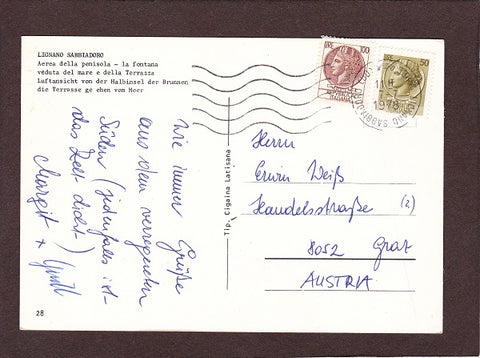 LIGNANO SABBIADORO
Aerea della penisola - la fontana
veduta del mare e della Terrazza
Luftansicht von der Halbinsel der Brunnen
die Terrasse ge ehen vom Meer
LIRE 100
LIRE 50
ITALIANA
SABBIADORO
1978
Tip. Cigaina Latisana
Wie immer Grüße
aus dem verregneten
Süden (jedenfalls ist
das Zelt dicht)
Margit +
Herrn
Erwin Weiß
Handelsstraße (2)
8052 Graz
AUSTRIA
28